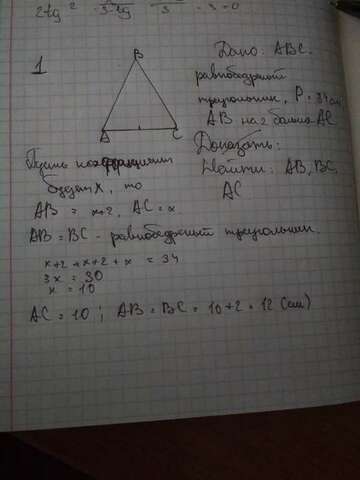 2tg 2
3-tg
3
-3=0
1
B
A
C
Дано: ABC.
равнобедренный
треугольник, P = 34 см
AB на 2 больше AC
Доказать:
Найти: AB, BC,
AC
Пусть
будет x, то
AB = x+2, AC = x
AB = BC - равнобедренный треугольник.
x+2+x+2+x = 34
3x = 30
x = 10
AC = 10; AB = BC = 10+2 = 12 (см)